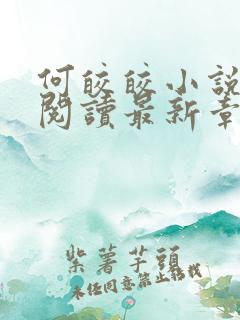 何皎皎小說
閱讀最新章
紫薯芋頭
未經同意禁止轉載